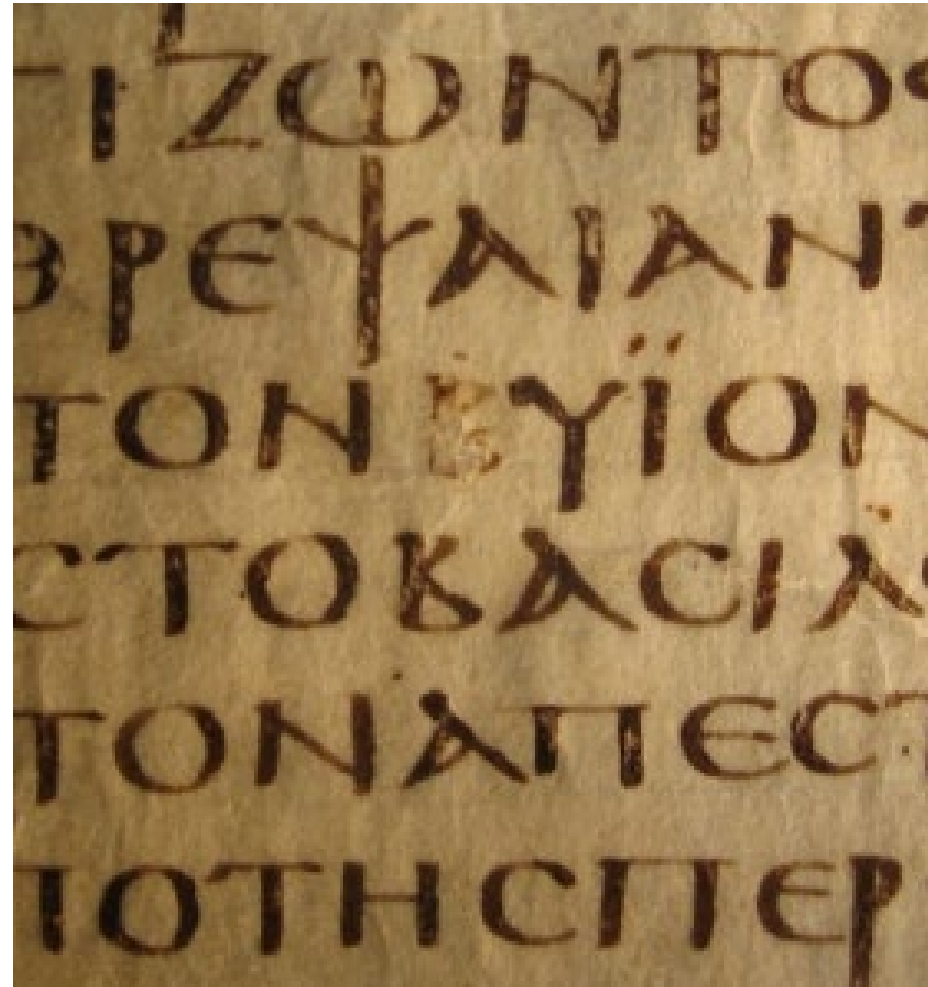 ΤΙΖΩΝΤΟΣ
ΘΡΕΨΑΙΑΝΤ
ΤΟΝ ΕΥΪΟΝ
ϹΤΟΒΑϹΙΛ
ΤΟΝΑΠΕϹΤ
ΤΟΤΗϹΠΕΡ